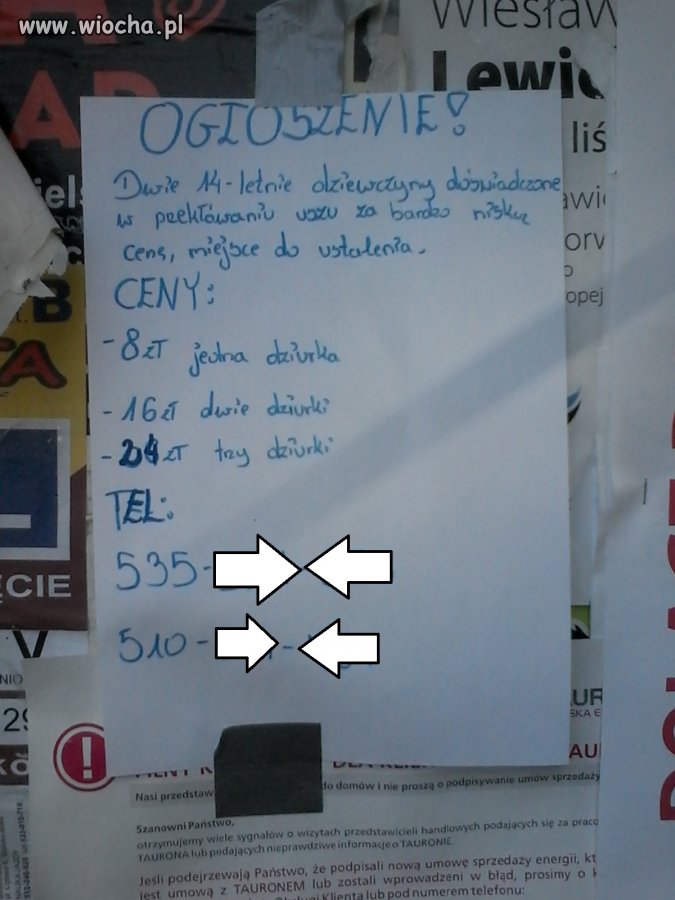 www.wiocha.pl
Wiesław
Lewic
liś
OGŁOSZENIE!
Dwie 14-letnie dziewczyny doświadczone
w przekłówaniu uszu za bardzo niską
cenę, miejsce do ustalenia.
CENY:
-8zł jedna dziurka
-16zł dwie dziurki
-24zł trzy dziurki
TEL:
535-
510-
ĘCIE
Nasi przedstaw do domów i nie proszą o podpisywanie umów sprzedaży
Szanowni Państwo,
otrzymujemy wiele sygnałów o wizytach przedstawicieli handlowych podających się za praco
TAURONA lub podających nieprawdziwe informacje o TAURONIE.
Jeśli podejrzewają Państwo, że podpisali nową umowę sprzedaży energii, kt
jest umową z TAURONEM lub zostali wprowadzeni w błąd, prosimy o k
Obsługi Klienta lub pod numerem telefonu: